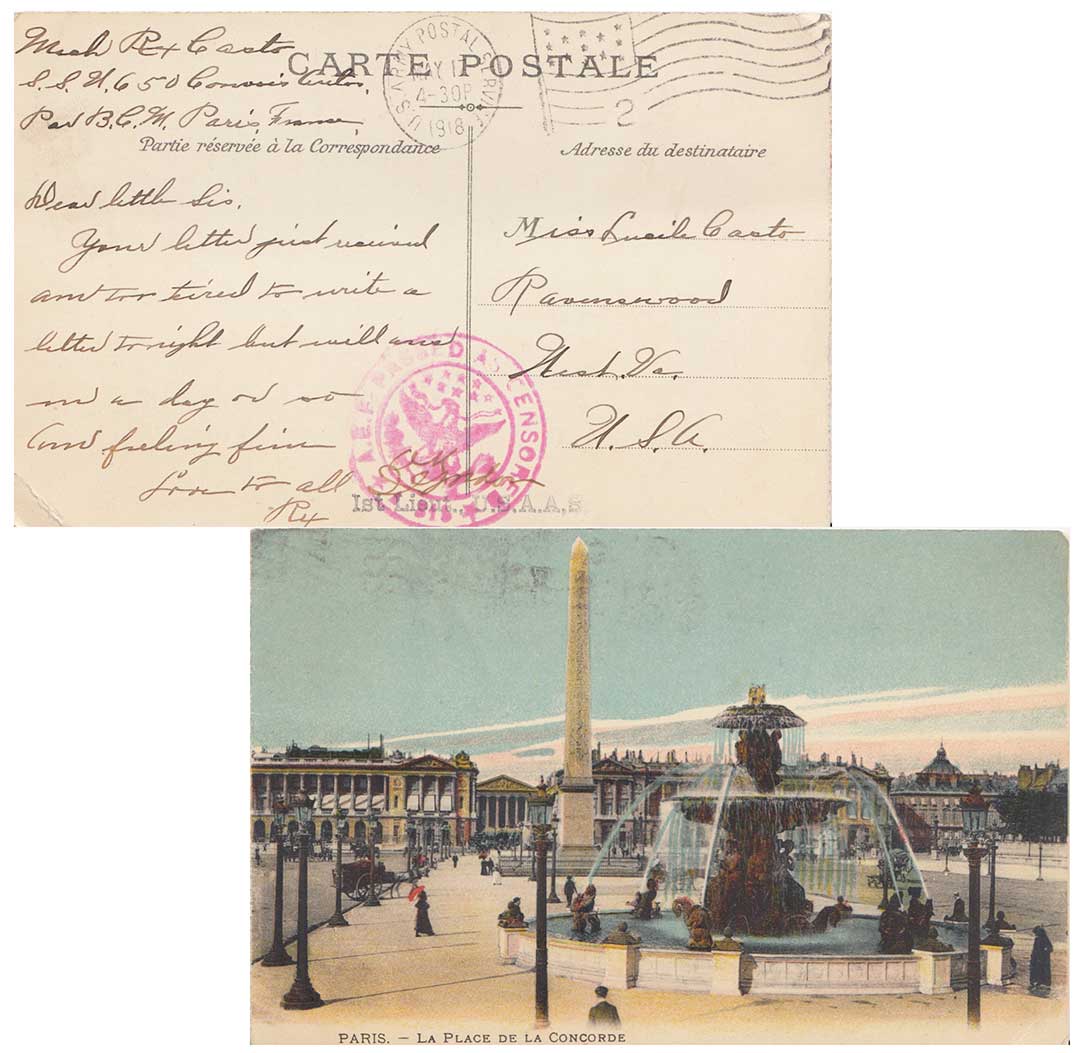 Mech Rex Casto
S.S.U. 650 Convois Autos,
Par B.C.M. Paris, France
CARTE POSTALE
U.S. ARMY POSTAL SERVICE
MAY 1
4-30P
1918
2
Partie réservée à la Correspondance
Adresse du destinataire
Dear little Sis,
Your letter just received
am too tired to write a
letter tonight but will ans
in a day or so
am feeling fine
Love to all
Rex
Miss Lucile Casto
Ravenswood
West. Va.
U.S.A.
A.E.F. PASSED AS CENSORED
1st Lieut., U.S.A.A.S.
PARIS. — LA PLACE DE LA CONCORDE